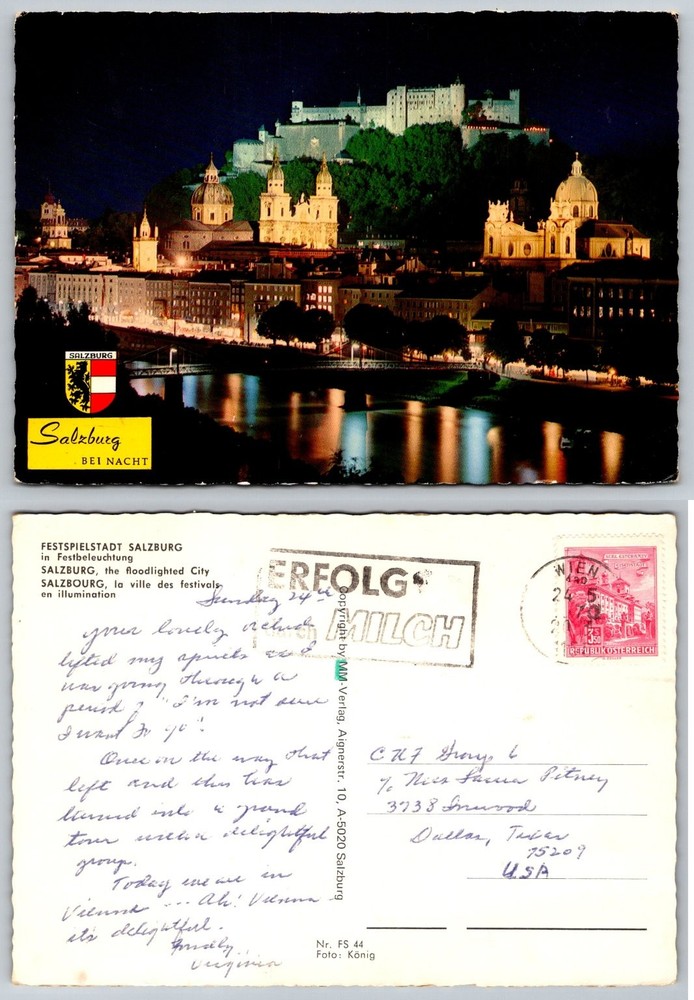 SALZBURG
Salzburg
BEI NACHT
FESTSPIELSTADT SALZBURG
in Festbeleuchtung
SALZBURG, the floodlighted City
SALZBOURG, la ville des festivals
en illumination
ERFOLG
durch MILCH
WIEN
24.5
REPUBLIK ÖSTERREICH
Sunday 24th
your lovely orchid
lifted my spirits and
was going through a
period of "I'm not sure
I want to go".
Once on the way that
left and this has
turned into a grand
tour with a delightful
group.
Today we are in
Vienna --- Ah! Vienna -
its delightful.
Fondly
Virginia
Copyright by MM-Verlag, Aignerstr. 10, A-5020 Salzburg
Group 6
% Miss Laura Pitney
3738 Inwood
Dallas, Texas
75209
USA
Nr. FS 44
Foto: König